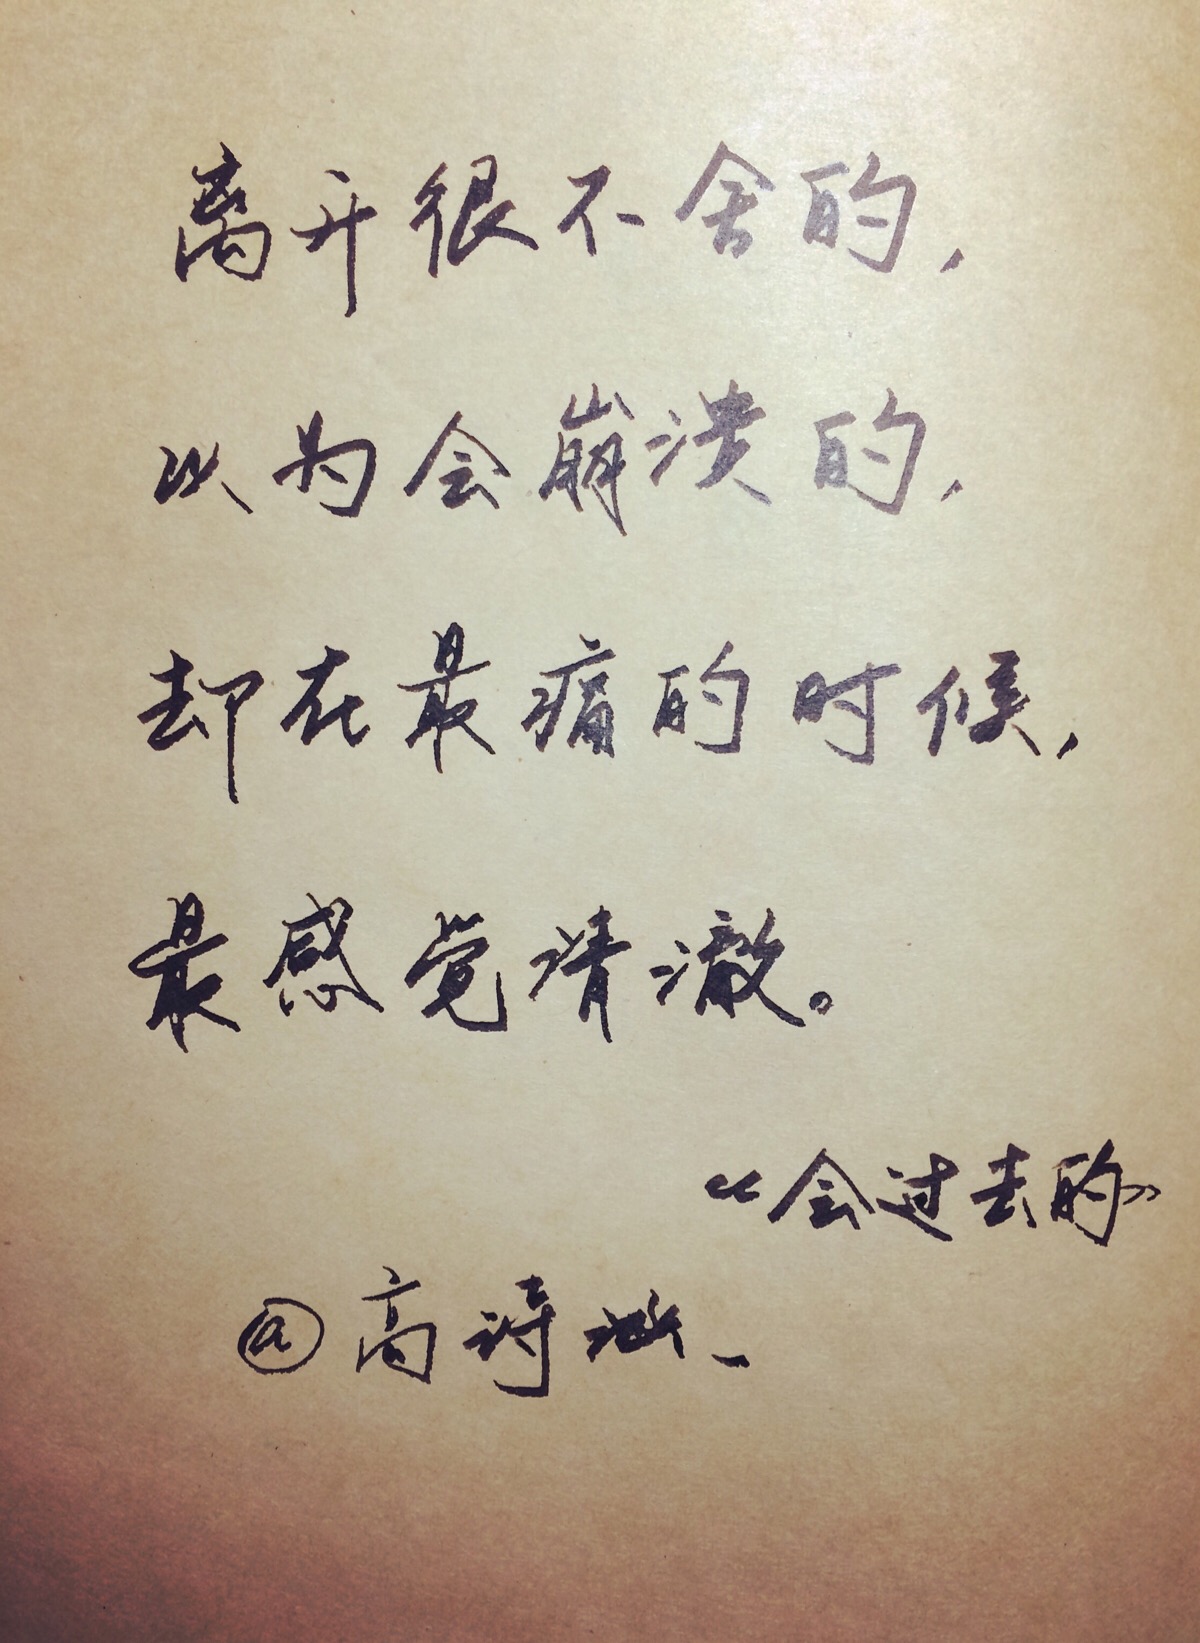 离开很不舍的，
以为会崩溃的，
却在最痛的时候，
最感觉清澈。
《会过去的》
@高诗